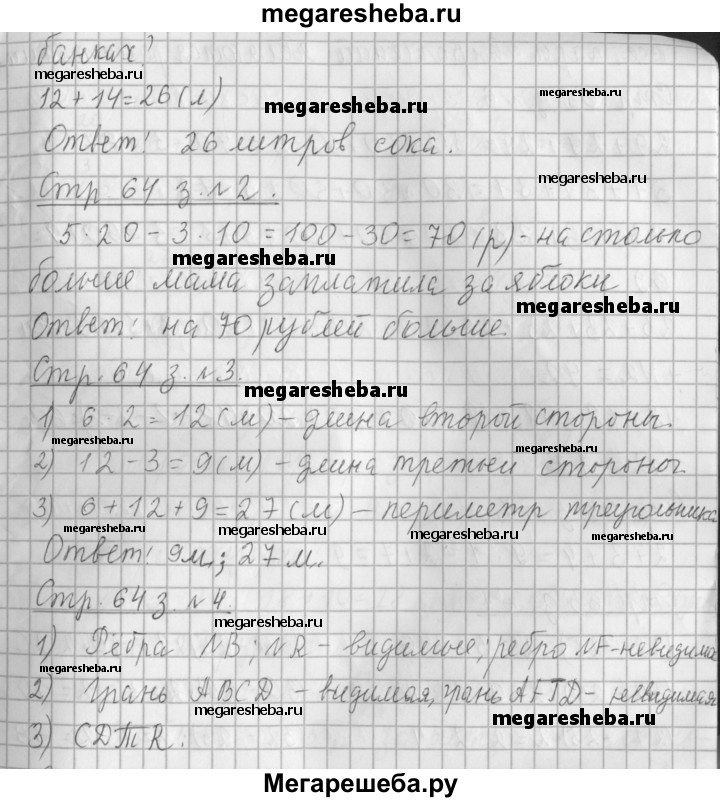 megaresheba.ru
банках?
megaresheba.ru
12+14=26(л)
megaresheba.ru
megaresheba.ru
Ответ: 26 литров сока.
megaresheba.ru
Стр 64 з.№2.
5·20-3·10=100-30=70(р)-на столько
megaresheba.ru
больше мама заплатила за яблоки
megaresheba.ru
Ответ: на 70 рублей больше.
Стр.64 з.№3.
megaresheba.ru
1) 6·2=12(м)-длина второй стороны.
megaresheba.ru
megaresheba.ru
2) 12-3=9(м)-длина третьей стороны.
3) 6+12+9=27(м)-периметр треугольника
megaresheba.ru
megaresheba.ru
megaresheba.ru
megaresheba.ru
Ответ: 9м.; 27м.
Стр.64 з.№4.
megaresheba.ru
1) Рёбра NB; NR-видимые; ребро NF-невидима
megaresheba.ru
2) Грань ABCD-видимая, грань AFTD-невидимая
megaresheba.ru
megaresheba.ru
3) CDTR.
megaresheba.ru
Мегарешеба.ру